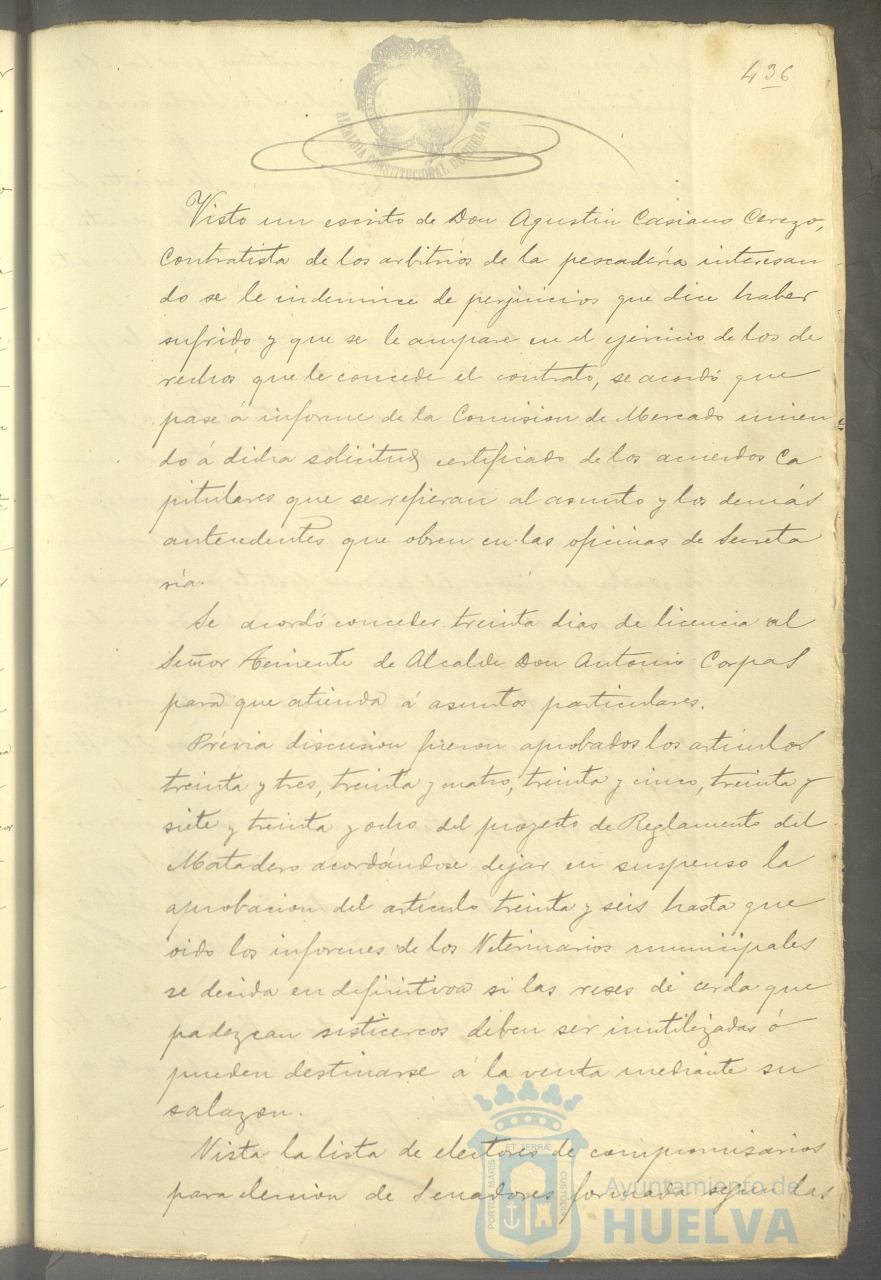 436
ALCALDIA CONSTITUCIONAL DE HUELVA
Visto un escrito de Don Agustin Casiano Cerezo,
Contratista de los arbitrios de la pescadería interesan
do se le indemnice de perjuicios que dice haber
sufrido y que se le ampare en el ejercicio de los de
rechos que le concede el contrato, se acordó que
pase á informe de la Comision de Mercado unien
do á dicha solicitud certificado de los acuerdos Ca
pitulares que se refieran al asunto y los demás
antecedentes que obren en las oficinas de Secreta
ría.
Se acordó conceder treinta dias de licencia al
Señor Teniente de Alcalde Don Antonio Corpas
para que atienda á asuntos particulares.
Prévia discusion fueron aprobados los artículos
treinta y tres, treinta y cuatro, treinta y cinco, treinta y
siete y treinta y ocho del proyecto de Reglamento del
Matadero acordándose dejar en suspenso la
aprobacion del artículo treinta y seis hasta que
oido los informes de los Veterinarios municipales
se decida en definitiva si las reses de cerda que
padezcan sisticercos deben ser inutilizadas ó
pueden destinarse á la venta mediante su
salazon.
Vista la lista de electores de compromisarios
para eleccion de Senadores formada segun las
PORTUS MARIS ET TERRÆ CUSTODIA
Ayuntamiento de
HUELVA